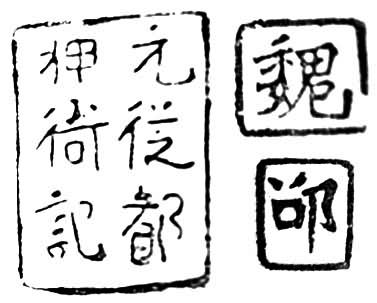 元從都
押衙記
魏
邵